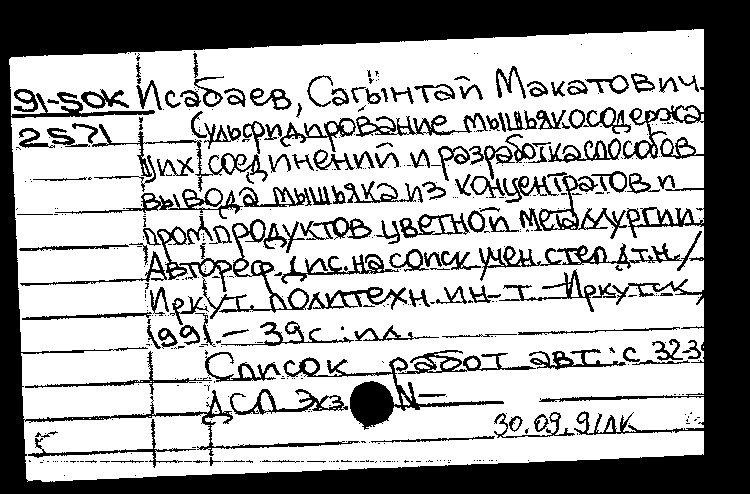 91-50К Исабаев, Сагынтай Макатович.
2571 Сульфидирование мышьякосодержа-
щих соединений и разработка способов
вывода мышьяка из концентратов и
промпродуктов цветной металлургии:
Автореф. дис. на соиск. учен. степ. д.т.н. /
Иркут. политехн. ин-т. – Иркутск,
1991 – 39с.: ил.
Список работ авт.: с 32-39
ДСП Экз. N –
30.09.91ЛК
5